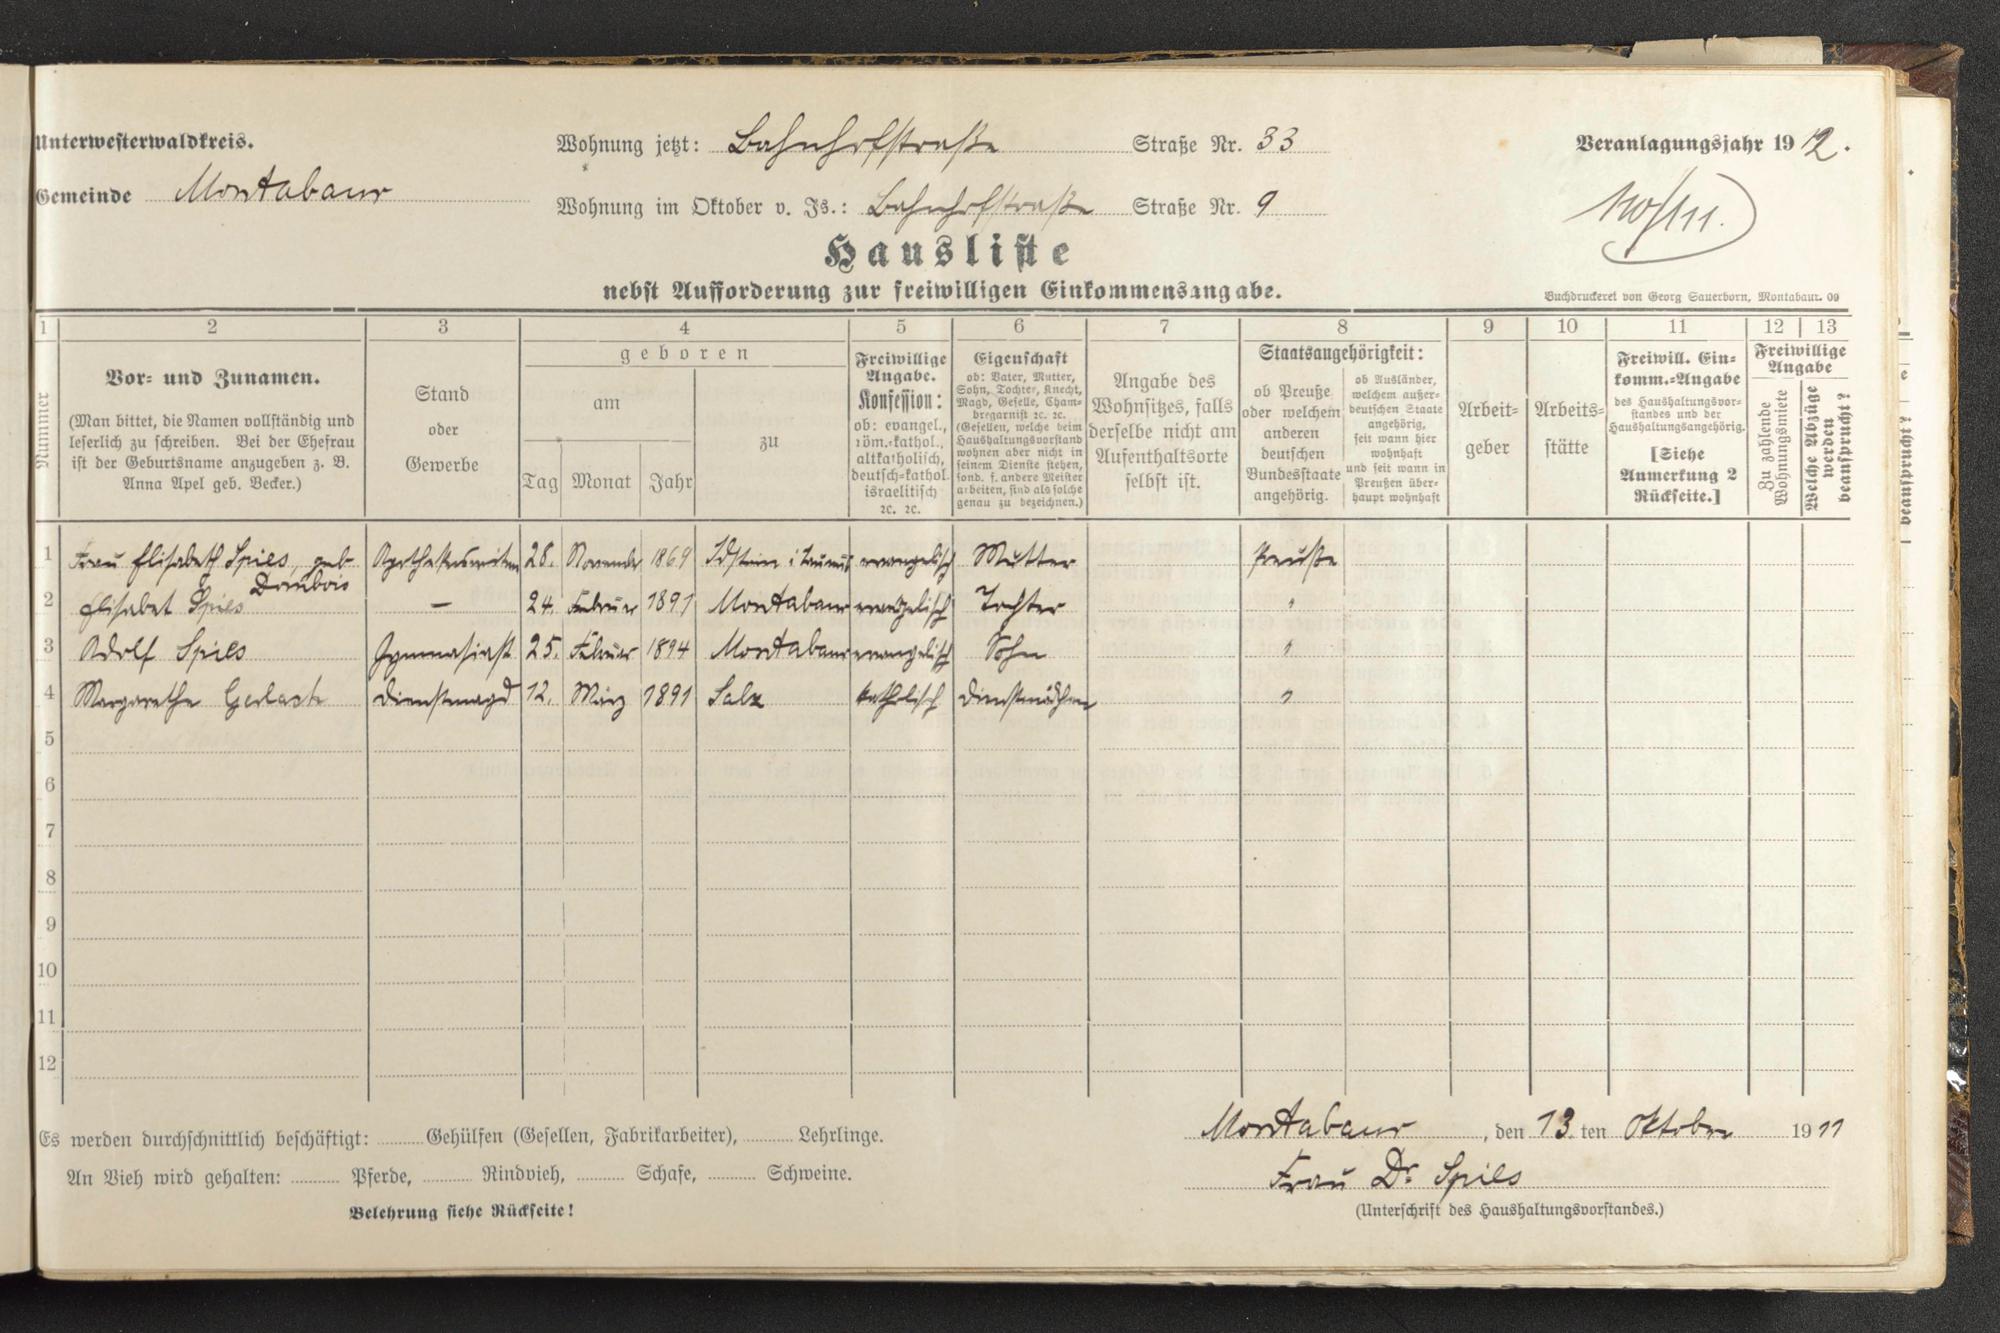 Unterwesterwaldkreis.
Gemeinde Montabaur
Wohnung jetzt: Bahnhofstraße Straße Nr. 33
Wohnung im Oktober v. Js.: Bahnhofstraße Straße Nr. 9
Veranlagungsjahr 1912.
Hausliste
nebst Aufforderung zur freiwilligen Einkommensangabe.
Buchdruckerei von Georg Sauerborn, Montabaur. 09
1 2 3 4 5 6 7 8 9 10 11 12 13
Nummer
Vor- und Zunamen.
(Man bittet, die Namen vollständig und
leserlich zu schreiben. Bei der Ehefrau
ist der Geburtsname anzugeben z. B.
Anna Apel geb. Becker.)
Stand
oder
Gewerbe
geboren
am
Tag Monat Jahr
zu
Freiwillige
Angabe.
Konfession:
ob: evangel.,
röm.-kathol.,
altkatholisch,
deutsch-kathol.
israelitisch
ꝛc. ꝛc.
Eigenschaft
ob: Vater, Mutter,
Sohn, Tochter, Knecht,
Magd, Geselle, Cham-
bregarnist ꝛc. ꝛc.
(Gesellen, welche beim
Haushaltungsvorstand
wohnen aber nicht in
seinem Dienste stehen,
sond. f. andere Meister
arbeiten, sind als solche
genau zu bezeichnen.)
Angabe des
Wohnsitzes, falls
derselbe nicht am
Aufenthaltsorte
selbst ist.
Staatsangehörigkeit:
ob Preuße
oder welchem
anderen
deutschen
Bundesstaate
angehörig.
ob Ausländer,
welchem außer-
deutschen Staate
angehörig,
seit wann hier
wohnhaft
und seit wann in
Preußen über-
haupt wohnhaft
Arbeit-
geber
Arbeits-
stätte
Freiwill. Ein-
komm.-Angabe
des Haushaltungsvor-
standes und der
Haushaltungsangehörig.
[Siehe
Anmerkung 2
Rückseite.]
Freiwillige
Angabe
Zu zahlende
Wohnungsmiete
Welche Abzüge
werden
beansprucht?
1 Frau Elisabeth Spies, geb. Dombois 28. November 1869 Idstein i Taunus evangelisch Mutter Preuße
2 Elisabet Spies — 24. Februar 1891 Montabaur evangelisch Tochter "
3 Adolf Spies Gymnasiast 25. Februar 1894 Montabaur evangelisch Sohn "
4 Margarethe Gerlach Dienstmagd 12. März 1891 Salz katholisch Dienstmädchen "
5
6
7
8
9
10
11
12
Es werden durchschnittlich beschäftigt: Gehülfen (Gesellen, Fabrikarbeiter), Lehrlinge.
An Vieh wird gehalten: Pferde, Rindvieh, Schafe, Schweine.
Belehrung siehe Rückseite!
Montabaur, den 13. ten Oktober 1911
Frau Dr. Spies
(Unterschrift des Haushaltungsvorstandes.)
beansprucht?